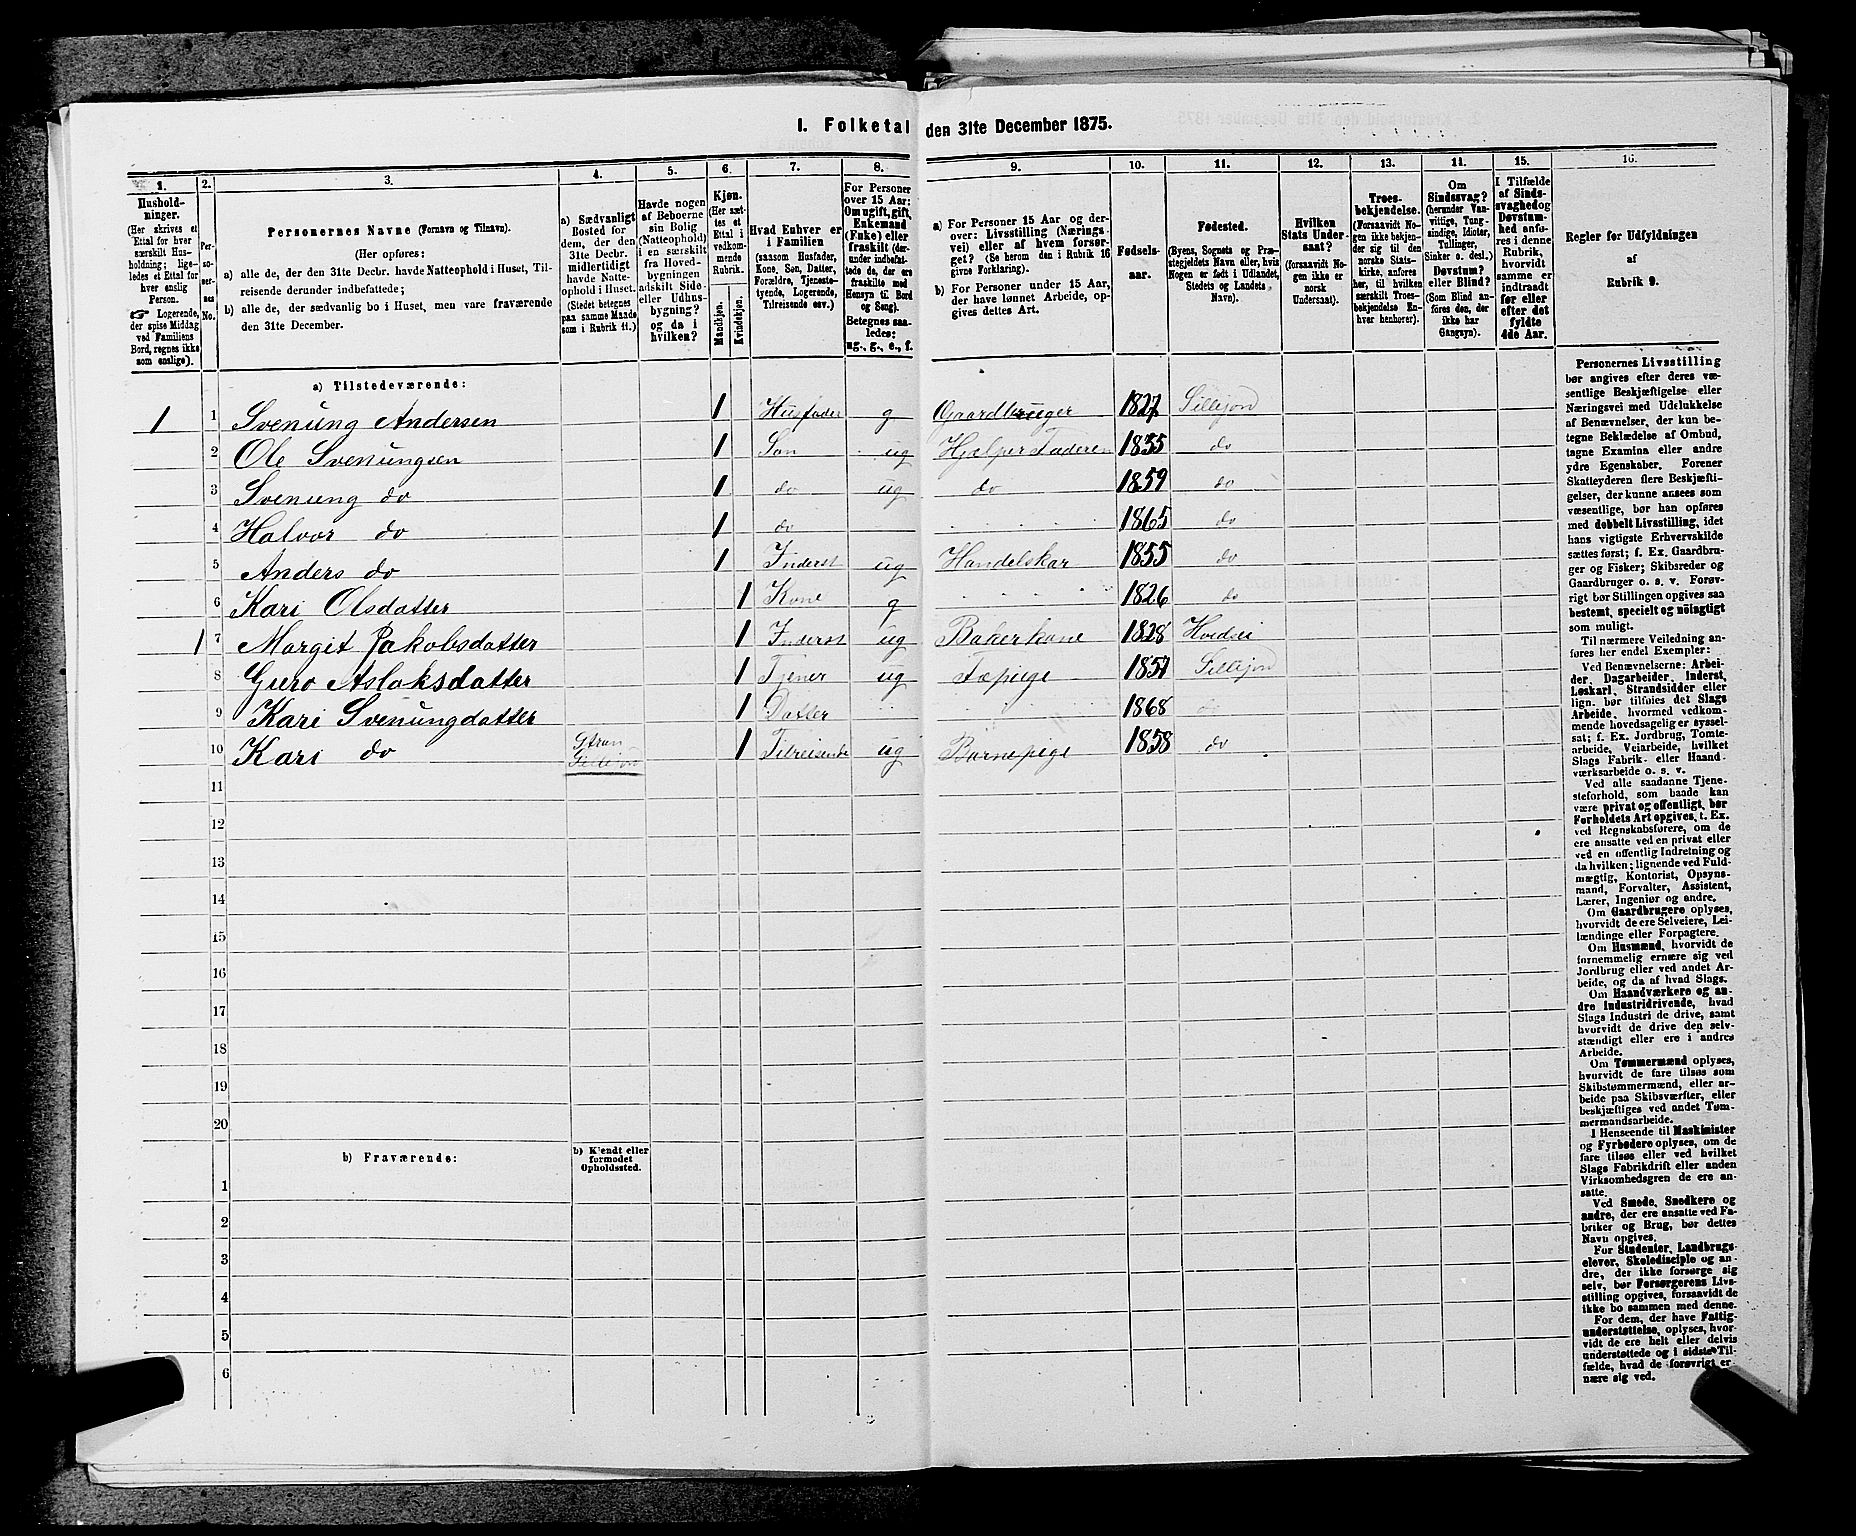 I. Folketal den 31te December 1875.
1. 2. 3. 4. 5. 6. 7. 8. 9. 10. 11. 12. 13. 14. 15. 16.
Husholdninger.
(Her skrives et
Ettal for hver
særskilt Husholdning;
ligeledes et Ettal for
hver enslig
Person.
☞ Logerende,
der spise Middag
ved Familiens
Bord, regnes ikke
som enslige).
Personernes No.
Personernes Navne (Fornavn og Tilnavn).
(Her opføres:
a) alle de, der den 31te Decbr. havde Natteophold i Huset, Tilreisende derunder indbefattede;
b) alle de, der sædvanlig bo i Huset, men vare fraværende
den 31te December.
a) Sædvanligt
Bosted for
dem, der den
31te Decbr.
midlertidigt
havde Natteophold i Huset.
(Stedet betegnes
paa samme Maade
som i Rubrik 11.)
Havde nogen
af Beboerne
sin Bolig
(Natteophold)
i en særskilt
fra Hovedbygningen
adskilt Side-
eller Udhusbygning?
og da i
hvilken?
Kjøn.
(Her sættes et
Ettal i
vedkommende
Rubrik.
Mandkjøn.
Kvindekjøn.
Hvad Enhver er
i Familien
(saasom Husfader,
Kone, Søn, Datter,
Forældre, Tjenestetyende, Logerende,
Tilreisende osv.)
For Personer
over 15 Aar:
Om ugift, gift,
Enkemand
(Enke) eller
fraskilt (derunder indbefattede de, der ere
fraskilte med
Hensyn til Bord
og Seng).
Betegnes saaledes:
ug., g., e., f.
a) For Personer 15 Aar og derover: Livsstilling (Næringsvei) eller af hvem forsørget? (Se herom den i Rubrik 16
givne Forklaring).
b) For Personer under 15 Aar,
der have lønnet Arbeide, opgives dettes Art.
Fødselsaar.
Fødested.
(Byens, Sognets og Præstegjeldets Navn eller, hvis
Nogen er født i Udlandet,
Stedets og Landets
Navn).
Hvilken
Stats Undersaat?
(forsaavidt Nogen ikke er
norsk
Undersaat).
Troesbekjendelse.
(Forsaavidt Nogen ikke bekjender sig til den
norske Statskirke, anføres
her, til hvilken
særskilt Troesbekjendelse Enhver henhører).
Om
Sindssvag?
(herunder Vanvittige, Tungsindige, Idioter,
Tullinger,
Sinker o. desl.)
Døvstum?
eller Blind?
(Som Blind anføres den, der
ikke har
Gangsyn).
I Tilfælde
af Sindssvaghed og
Døvstumhed anføres i denne
Rubrik,
hvorvidt
samme er
indtraadt
før eller
efter det
fyldte
4de Aar.
Regler for Udfyldningen
af
Rubrik 9.
a) Tilstedeværende:
1 1 Svenung Andersen 1 Husfader g Gaardbruger 1827 Sillejord
2 Ole Svenungsen 1 Søn ug Hjælper Faderen 1855 do
3 Svenung do 1 do ug do 1859 do
4 Halvor do 1 do 1865 do
5 Anders do 1 Inderst ug Handelskar 1855 do
6 Kari Olsdatter 1 Kone g 1826 do
1 7 Margit Jakobsdatter 1 Inderst ug Bakerkone 1828 Hvidsei
8 Guro Aslaksdatter 1 Tjener ug Fæpige 1857 Sillejord
9 Kari Svenungdatter 1 Datter 1868 do
10 Kari do 1 Tilreisende ug Barnepige 1858 do
11
12
13
14
15
16
17
18
19
20
b) Fraværende:
b) Kjendt eller
formodet
Opholdssted.
1
2
3
4
5
6
Personernes Livsstilling
bør angives efter deres væsentlige Beskjæftigelse eller
Næringsvei med Udelukkelse
af Benævnelser, der kun betegne Beklædelse af Ombud,
tagne Examina eller andre
ydre Egenskaber. Forener
Skatteyderen flere Beskjæftigelser, der kunne ansees som
væsentlige, bør han opføres
med dobbelt Livsstilling, idet
hans vigtigste Erhvervskilde
sættes først; f. Ex. Gaardbruger og Fisker; Skibsreder og
Gaardbruger o. s. v. Forøvrigt bør Stillingen opgives saa
bestemt, specielt og nøiagtigt
som muligt.
Til nærmere Veiledning anføres her endel Exempler:
Ved Benævnelserne: Arbeider, Dagarbeider, Inderst,
Løskarl, Strandsidder eller
lign. bør tilføies det Slags
Arbeide, hvormed vedkommende hovedsagelig er sysselsat; f. Ex. Jordbrug, Tomtearbeide, Veiarbeide, hvilket
Slags Fabrik- eller Haandværksarbeide o. s. v.
Ved alle saadanne Tjenesteforhold, som baade kan
være privat og offentligt, bør
Forholdets Art opgives, t. Ex.
ved Regnskabsførere, om de
ere ansatte ved en privat eller
ved en offentlig Indretning og
da hvilken; lignende ved Fuldmægtig, Kontorist, Opsynsmand, Forvalter, Assistent,
Lærer, Ingeniør og andre.
Om Gaardbrugere oplyses,
hvorvidt de ere Selveiere, Leilændinge eller Forpagtere.
Om Husmænd, hvorvidt de
fornemmelig ernære sig ved
Jordbrug eller ved andet Arbeide, og da af hvad Slags.
Om Haandværkere og andre Industridrivende, hvad
Slags Industri de drive, samt
hvorvidt de drive den selvstændigt eller ere i andres
Arbeide.
Om Tømmermænd oplyses,
hvorvidt de fare tilsøs som
Skibstømmermænd, eller arbeide paa Skibsværfter, eller
beskjæftiges ved andet Tømmermandsarbeide.
I Henseende til Maskinister
og Fyrbødere oplyses, om de
fare tilsøs eller ved hvilket
Slags Fabrikdrift eller anden
Virksomhedsgren de ere ansatte.
Ved Smede, Snedkere og
andre, der ere ansatte ved Fabriker og Brug, bør dettes
Navn opgives.
For Studenter, Landbrugselever, Skoledisciple og andre, der ikke forsørge sig
selv, bør Forsørgerens Livsstilling opgives, forsaavidt de
ikke bo sammen med denne.
For dem, der have Fattigunderstøttelse, oplyses, hvorvidt de ere helt eller delvis
understøttede og i sidste Tilfælde, hvad de forøvrigt ernære sig ved.